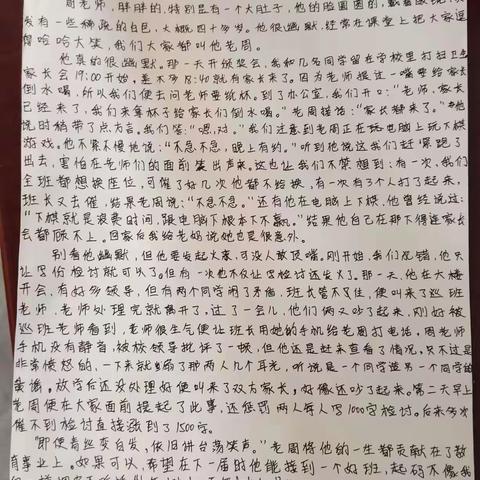 周老师,胖胖的,特别是有一个大肚子,他的脸圆圆的,戴着眼镜,头
发有一些稀疏的白色,大概四十多岁。他很幽默,经常在课堂上把大家逗
得哈哈大笑,我们大家都叫他老周。
他真的很幽默。那一天开颁奖会,我和几名同学留在学校里打扫卫生
家长会19:00开始,差不多18:40就有家长来了。因为老师提过一嘴要给家长
倒水喝,所以我们便去问老师要纸杯。到了办公室,我们开口:“老师,家长
已经来了,我们来拿杯子给家长们倒水喝。”老周接话:“家长都来了。”他
说时稍带了点方言。我们答:“嗯,对。”我们注意到老周正在玩电脑上下棋
游戏。他不紧不慢地说:“不急不急,晚上有约。”听到他说这我们赶紧跑了
出去,害怕在老师们的面前笑出声来。这也让我们不禁想到:有一次,我们
全班都想换座位,可催了好几次他都不给换,有一次有3个人打了起来,
班长又去催,结果老周说:“不急不急。”还有他在电脑上下棋,他曾经说过:
“下棋就是浪费时间,跟电脑下根本下不赢。”结果他自己在那下得连家长
会都顾不上。回家后我给老妈说她也是很意外。
别看他幽默,但他要发起火来,可没人敢顶嘴。刚开始,我们犯错,他只
让写份检讨就可以了。但有一次他不仅让写检讨还发火了。那一天,他在大楼
开会,有好多领导,但有两个同学闹了矛盾,班长管不住,便叫来了巡班
老师,老师处理完就离开了,过了一会儿,他们俩又吵了起来,刚好被
巡班老师看到,老师很生气便让班长用她的手机给老周打电话,周老师
手机没有静音,被校领导批评了一顿,但他还是赶来查看了情况,只不过是
非常愤怒的,一下来就扇了那两人几个耳光,听说是一个同学造另一个同学的
黄谣。放学后还没处理好便叫来了双方家长,好像还吵了起来。第二天早上
老周便在大家面前提起了此事,还惩罚两人每人写1000字检讨。后来多次
催不到检讨直接涨到了1500字。
“即使青丝变白发,依旧讲台荡笑声。”老周将他的一生都贡献在了教
育事业上。如果可以,希望在下一届时他能接到一个好班,起码不像我